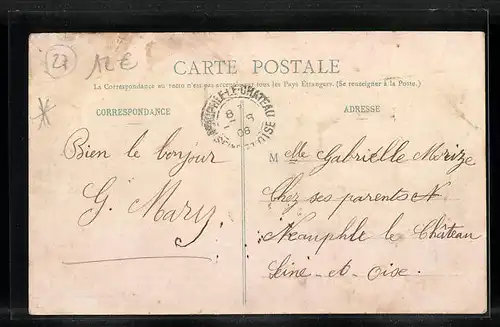 27
12 €
CARTE POSTALE
La Correspondance au recto n'est pas acceptée par tous les Pays Étrangers. (Se renseigner à la Poste.)
CORRESPONDANCE
ADRESSE
NEAUPHLE-LE-CHATEAU
8
06
SEINE-ET-OISE
Bien le bonjour
G. Mariz
Melle Gabrielle
Chez ses parents
Neauphle le Château
Seine-et-Oise.